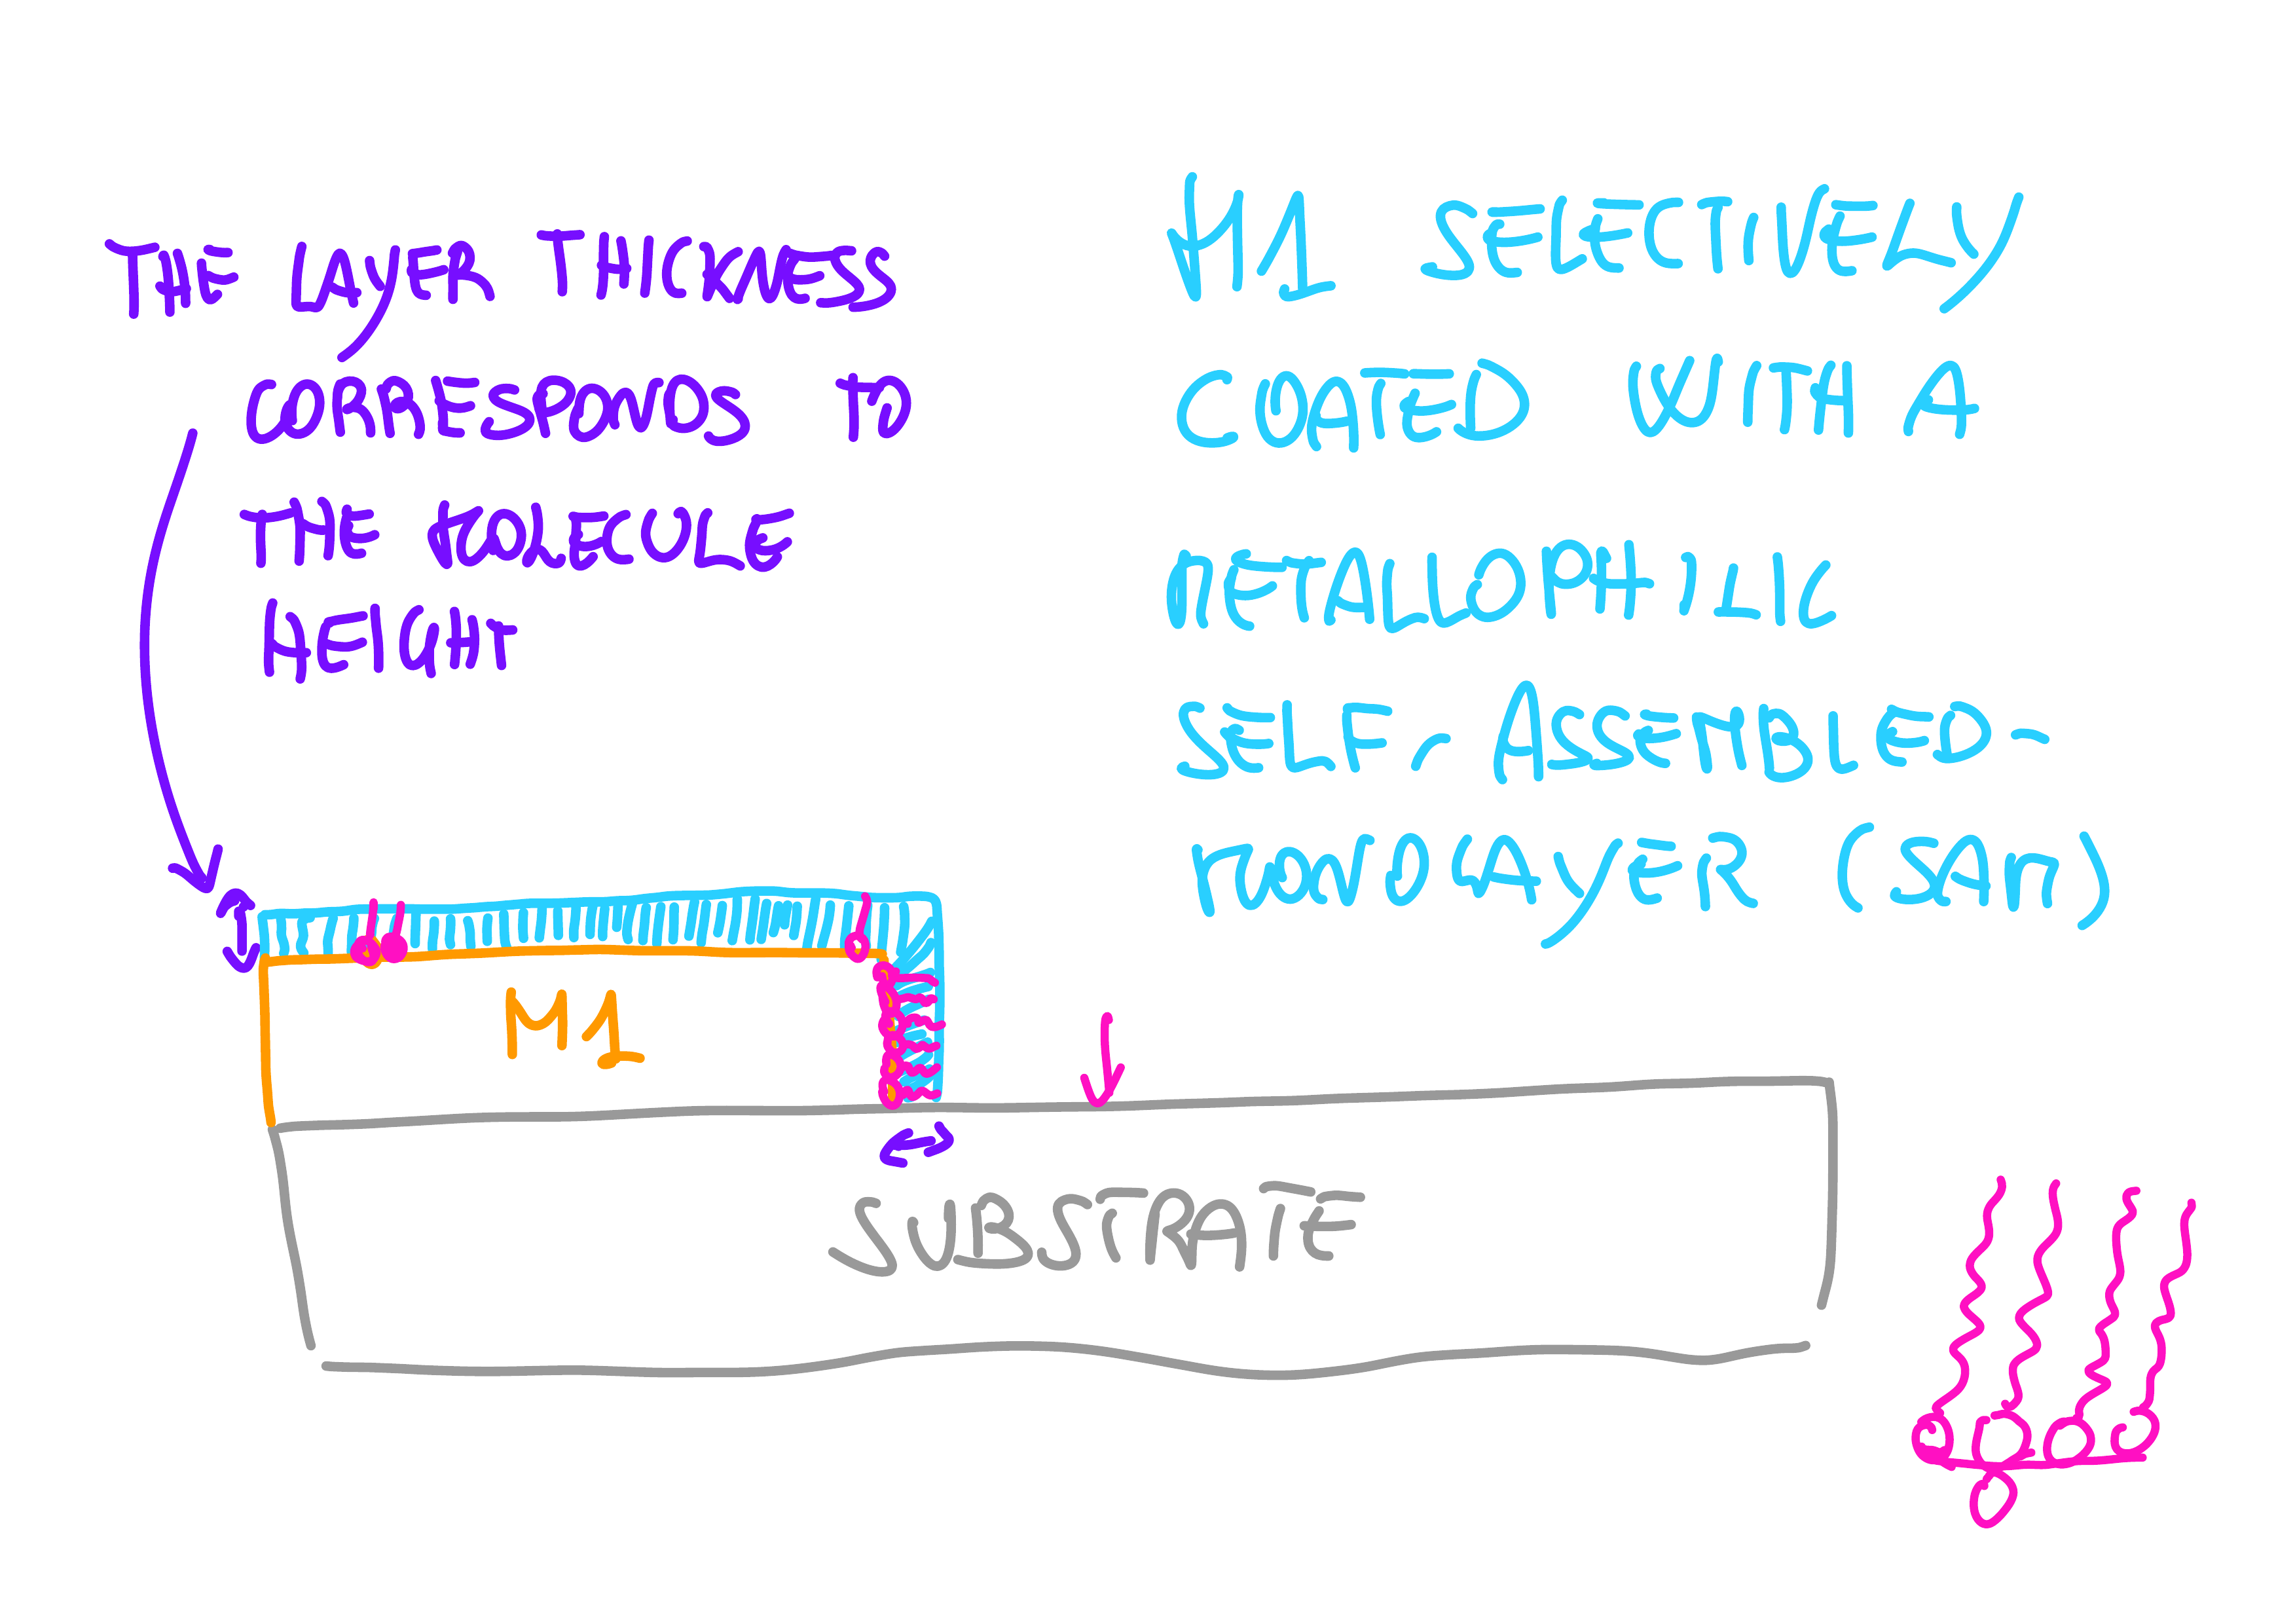 THE LAYER THICKNESS
CORRESPONDS TO
THE MOLECULE
HEIGHT
M1 SELECTIVELY
COATED WITH A
METALLOPHILIC
SELF-ASSEMBLED-
MONOLAYER (SAM)
M1
SUBSTRATE